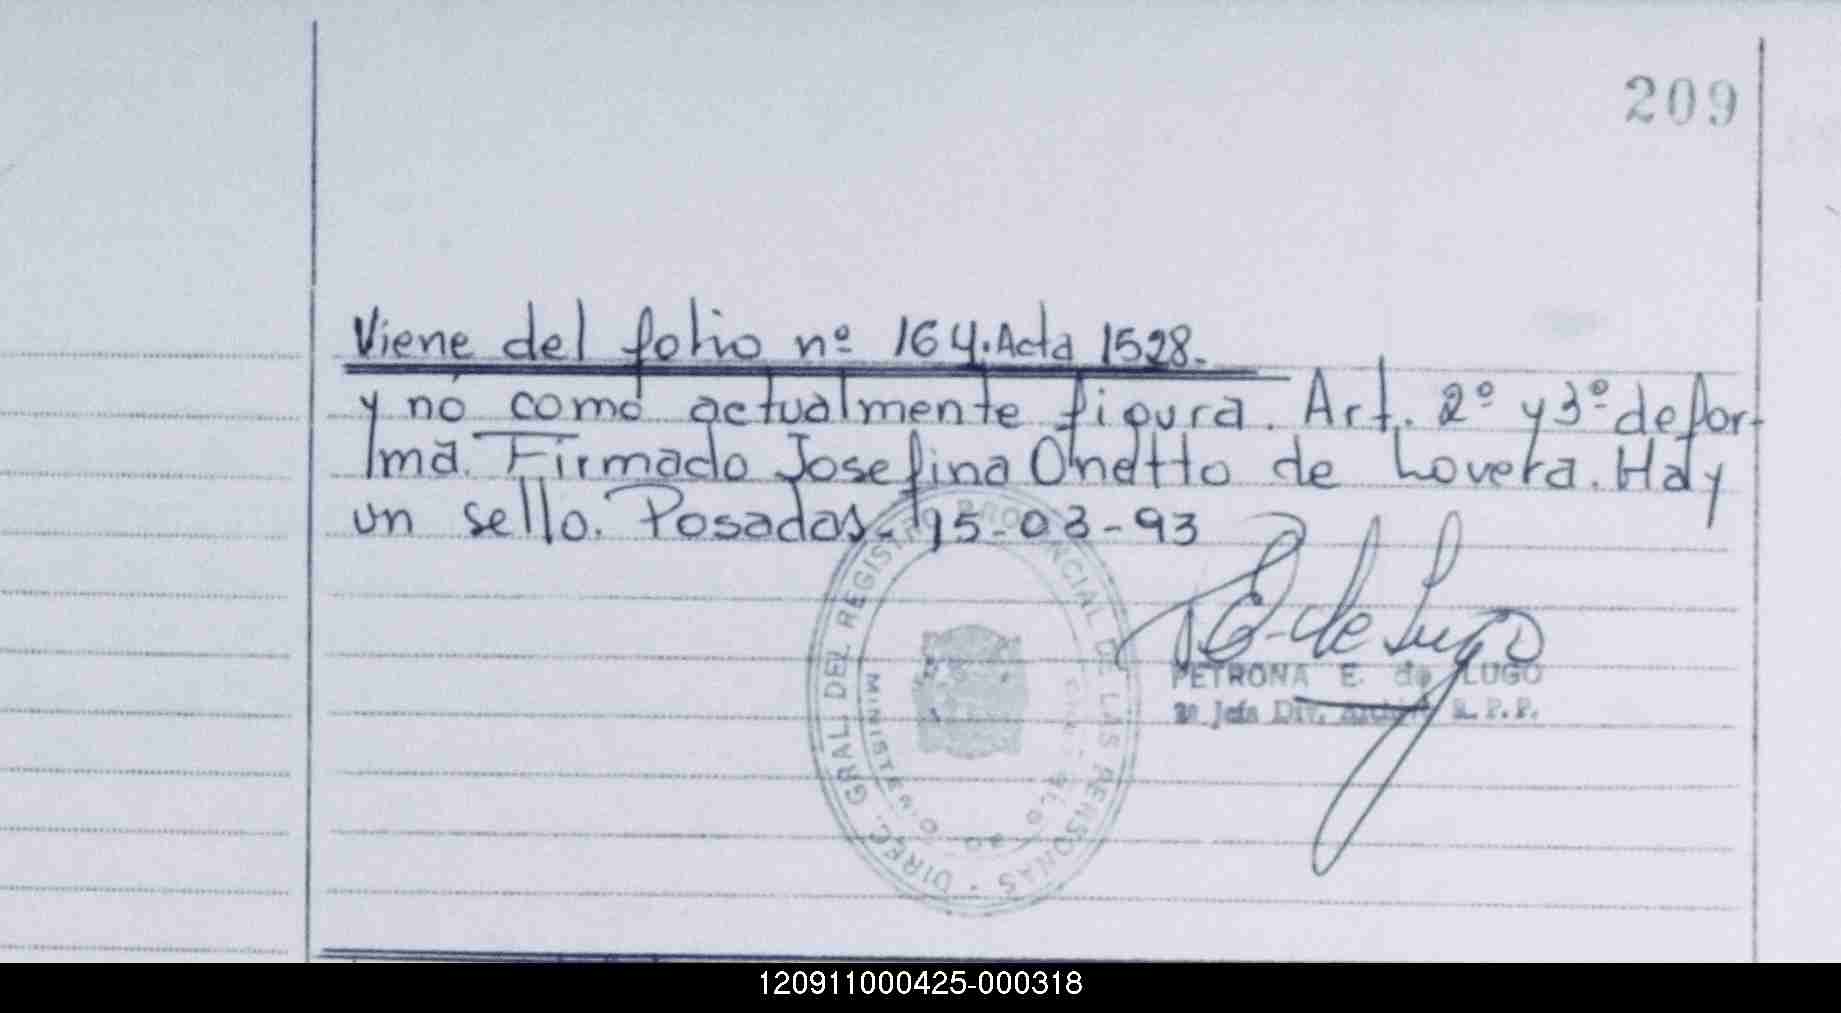 209
Viene del folio nº 164. Acta 1528.-
y no como actualmente figura. Art. 2º y 3º de for-
ma. Firmado Josefina Onetto de Lovera. Hay
un sello. Posadas, 15-03-93
DIREC. GRAL. DEL REGISTRO PROVINCIAL DE LAS PERSONAS
MINISTERIO DE
P E. de Lugo
PETRONA E. de LUGO
Jefa Div. R. P. P.
120911000425-000318